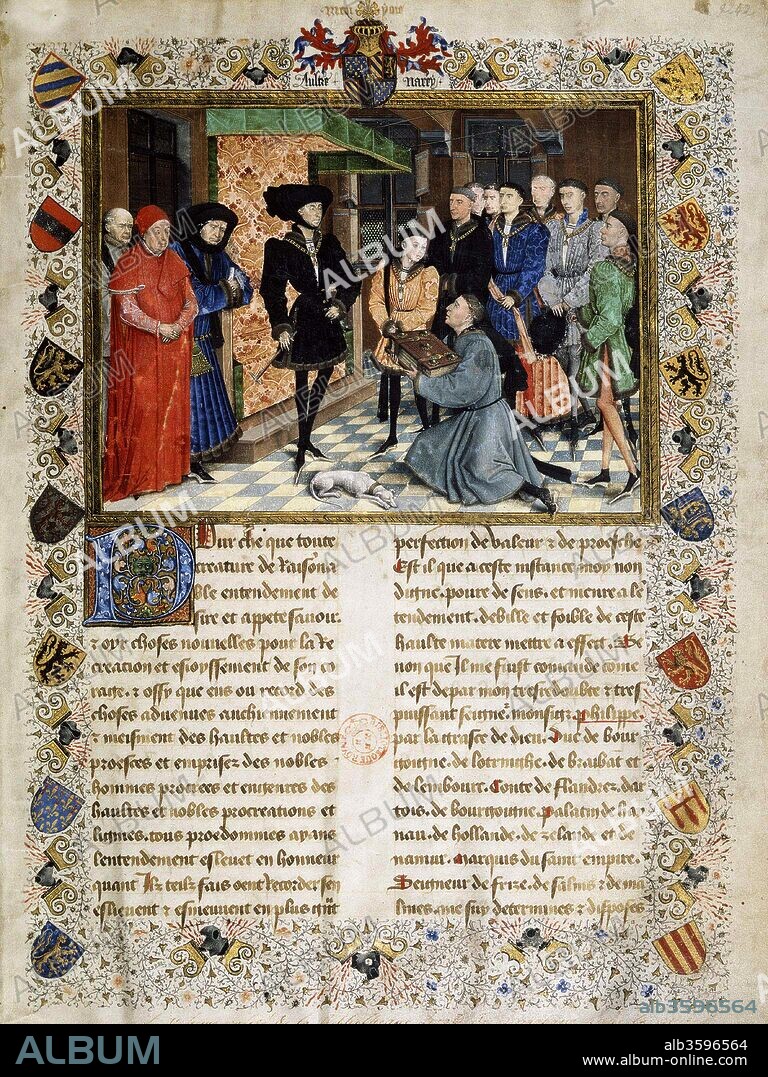 Aultre narey
9242
Pur che que toute
creature de Raisonna
ble entendement de
sire et appete sauoir
& oyr choses nouuelles pour la Re
creation et esioyssement de son co
rage. & ossy que ens ou record des
choses aduenues anchiennement
& meisment des haultes et nobles
proesces et emprises des nobles
hommes procrees et engenres des
haultes et nobles procreations et
lignies. tous proedommes ayans
lentendement esleuet en honneur
quant Ilz telz fais oent Recorder sen
eslieuent & esmeuuent en plus grāt
perfection de valeur & de proesche
Est il que a ceste instance moy non
digne. poure de sens. et meure a le
tendement. debille et foible de ceste
haulte matere mettre a effect. Se
non que Il me feust cōmādé cōme
il est de par mon tresredoubté & tres
puissant seignr. monsigr. Phelippe.
par la grasce de dieu. Duc de bour
goigne. de lotrijghe. de brabāt et
de lembourc. Conte de flandrez. dar
tois. de bourgoigne. Palatin de hay
nau. de hollande. de zelande et de
namur. Marquis du saint empire.
Seigneur de frize. de salins & de ma
lines. que suy determinés & disposés
ALBUM
alb3596564
ALBUM
alb3596564
www.album-online.com